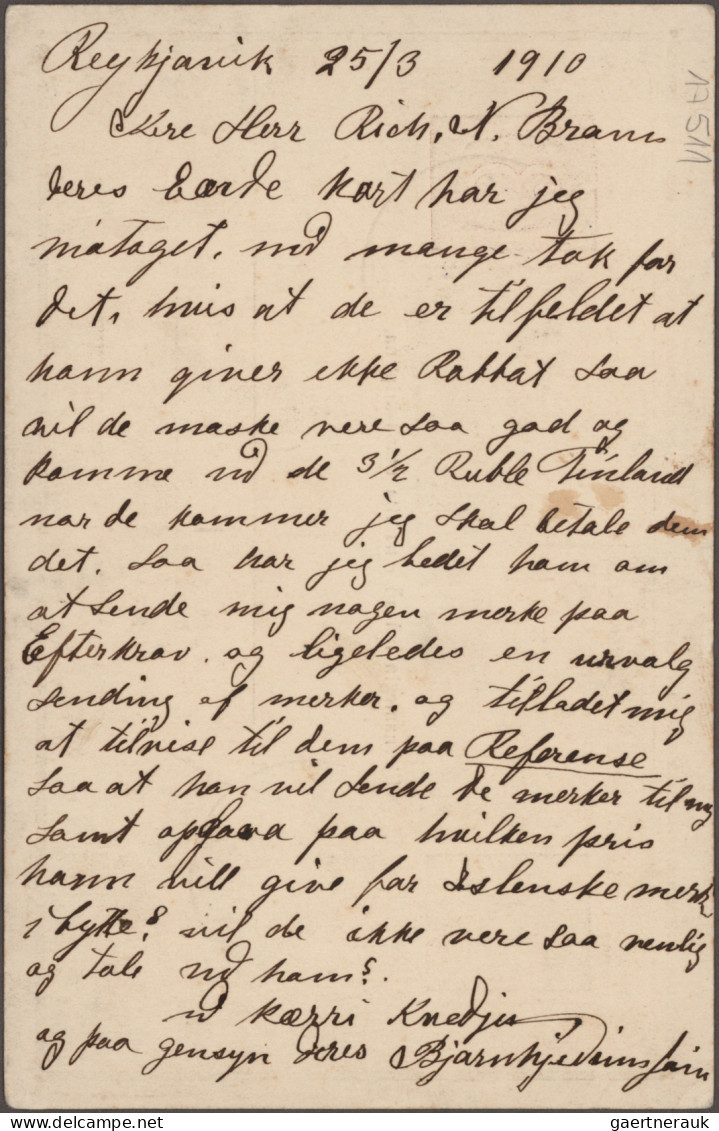 Reykjavik 25/3 1910
17511
Kere Herr Rich. N. Braun
deres ærede kort har jeg
mótaget. með mange tak for
det, hvis at de er tilfeldet at
hann giver ikke Rabbat saa
vil de maske vere saa god og
komme við de 3 1/2 Ruble Finland
nar de kommer jeg skal betale dem
det. Saa har jeg bedet ham om
at Sende mig nogen merke paa
Efterkrav. og ligeledes en urvalg
sending af merker. og tilladet mig
at tilvise til dem paa Referense
saa at han vil sende de merker til mig
samt opgava paa hvilken pris
hann vill give for Islenske merk
i bytte? vil de ikke vere saa venlig
og tale við ham?.
kærri
og paa gensyn deres
gaertnerauk